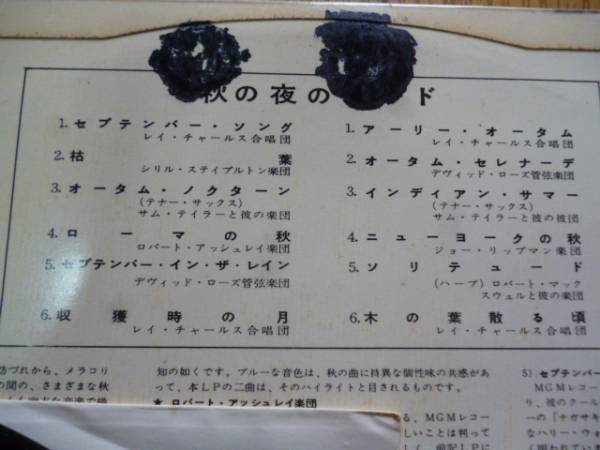 秋の夜の ド
1. セプテンバー・ソング
レイ・チャールス合唱団
2. 枯葉
シリル・ステイプルトン楽団
3. オータム・ノクターン
(テナー・サックス)
サム・テイラーと彼の楽団
4. ローマの秋
ロバート・アッシュレイ楽団
5. セプテンバー・イン・ザ・レイン
デヴィッド・ローズ管弦楽団
6. 収穫時の月
レイ・チャールス合唱団
1. アーリー・オータム
レイ・チャールス合唱団
2. オータム・セレナーデ
デヴィッド・ローズ管弦楽団
3. インディアン・サマー
(テナー・サックス)
サム・テイラーと彼の彼団
4. ニューヨークの秋
ジョー・リップマン楽団
5. ソリテュード
(ハープ) ロバート・マック
スウェルと彼の楽団
6. 木の葉散る頃
レイ・チャールス合唱団
づれから、メラコリ
の間の、さまざまな秋
知の如くです。ブルーな音色は、秋の曲に特異な個性味の共感があ
って、本LPの二曲は、そのハイライトと目されるものです。
★ ロバート・アッシュレイ楽団
る、MGMレコー
しいことは判って
し、前記LPに
5) セプテンバー
MGMレコ
り、彼のクール
ーの「ナガサキ
なハリー・ウォ